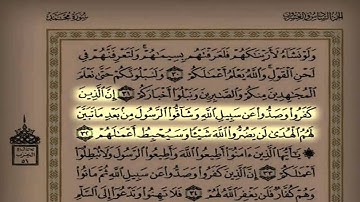 الجزء السادس والعشرون
سورة محمد
وَلَوْ نَشَآءُ لَأَرَيْنَٰكَهُمْ فَلَعَرَفْتَهُم بِسِيمَٰهُمْ ۚ وَلَتَعْرِفَنَّهُمْ فِى
لَحْنِ ٱلْقَوْلِ ۚ وَٱللَّهُ يَعْلَمُ أَعْمَٰلَكُمْ ٣٠ وَلَنَبْلُوَنَّكُمْ حَتَّىٰ نَعْلَمَ
ٱلْمُجَٰهِدِينَ مِنكُمْ وَٱلصَّٰبِرِينَ وَنَبْلُوَا۟ أَخْبَارَكُمْ ٣١ إِنَّ ٱلَّذِينَ
كَفَرُوا۟ وَصَدُّوا۟ عَن سَبِيلِ ٱللَّهِ وَشَآقُّوا۟ ٱلرَّسُولَ مِنۢ بَعْدِ مَا تَبَيَّنَ
لَهُمُ ٱلْهُدَىٰ لَن يَضُرُّوا۟ ٱللَّهَ شَيْـًٔا وَسَيُحْبِطُ أَعْمَٰلَهُمْ ٣٢
۞ يَٰٓأَيُّهَا ٱلَّذِينَ ءَامَنُوٓا۟ أَطِيعُوا۟ ٱللَّهَ وَأَطِيعُوا۟ ٱلرَّسُولَ وَلَا تُبْطِلُوٓا۟
أَعْمَٰلَكُمْ ٣٣ إِنَّ ٱلَّذِينَ كَفَرُوا۟ وَصَدُّوا۟ عَن سَبِيلِ ٱللَّهِ ثُمَّ مَاتُوا۟
وَهُمْ كُفَّارٌ فَلَن يَغْفِرَ ٱللَّهُ لَهُمْ ٣٤ فَلَا تَهِنُوا۟ وَتَدْعُوٓا۟ إِلَى ٱلسَّلْمِ